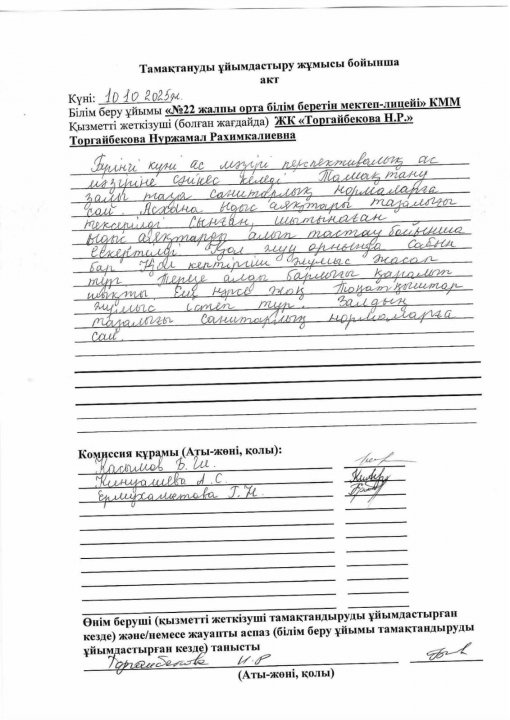 Тамақтануды ұйымдастыру жұмысы бойынша
акт
Күні: 10 10 2025ж.
Білім беру ұйымы «№22 жалпы орта білім беретін мектеп-лицейі» КММ
Қызметті жеткізуші (болған жағдайда) ЖК «Торгайбекова Н.Р.»
Торгайбекова Нуржамал Рахимкалиевна
Бүгінгі күнгі ас мәзірі перспективалық ас
мәзіріне сәйкес келеді Тамақтану
залы таза санитарлық нормаларға
сай. Асхана ыдыс аяқтары тазалығы
тексерілді Сынған, шытынаған
ыдыс аяқтарды алып тастау бойынша
Ескертілді Қол жуу орнында сабын
бар Қол кептіргіш жұмыс жасап
тұр алды барлығы қаралып
шықты. жоқ Тоңазытқыштар
жұмыс істеп тұр Залдың
тазалығы санитарлық нормаларға
сай.
Комиссия құрамы (Аты-жөні, қолы):
Касымов Б.Ш.
А.С.
Ермухаметова Г.Н.
Өнім беруші (қызметті жеткізуші тамақтандыруды ұйымдастырған
кезде) және/немесе жауапты аспаз (білім беру ұйымы тамақтандыруды
ұйымдастырған кезде) танысты
Торгайбекова Н Р
(Аты-жөні, қолы)